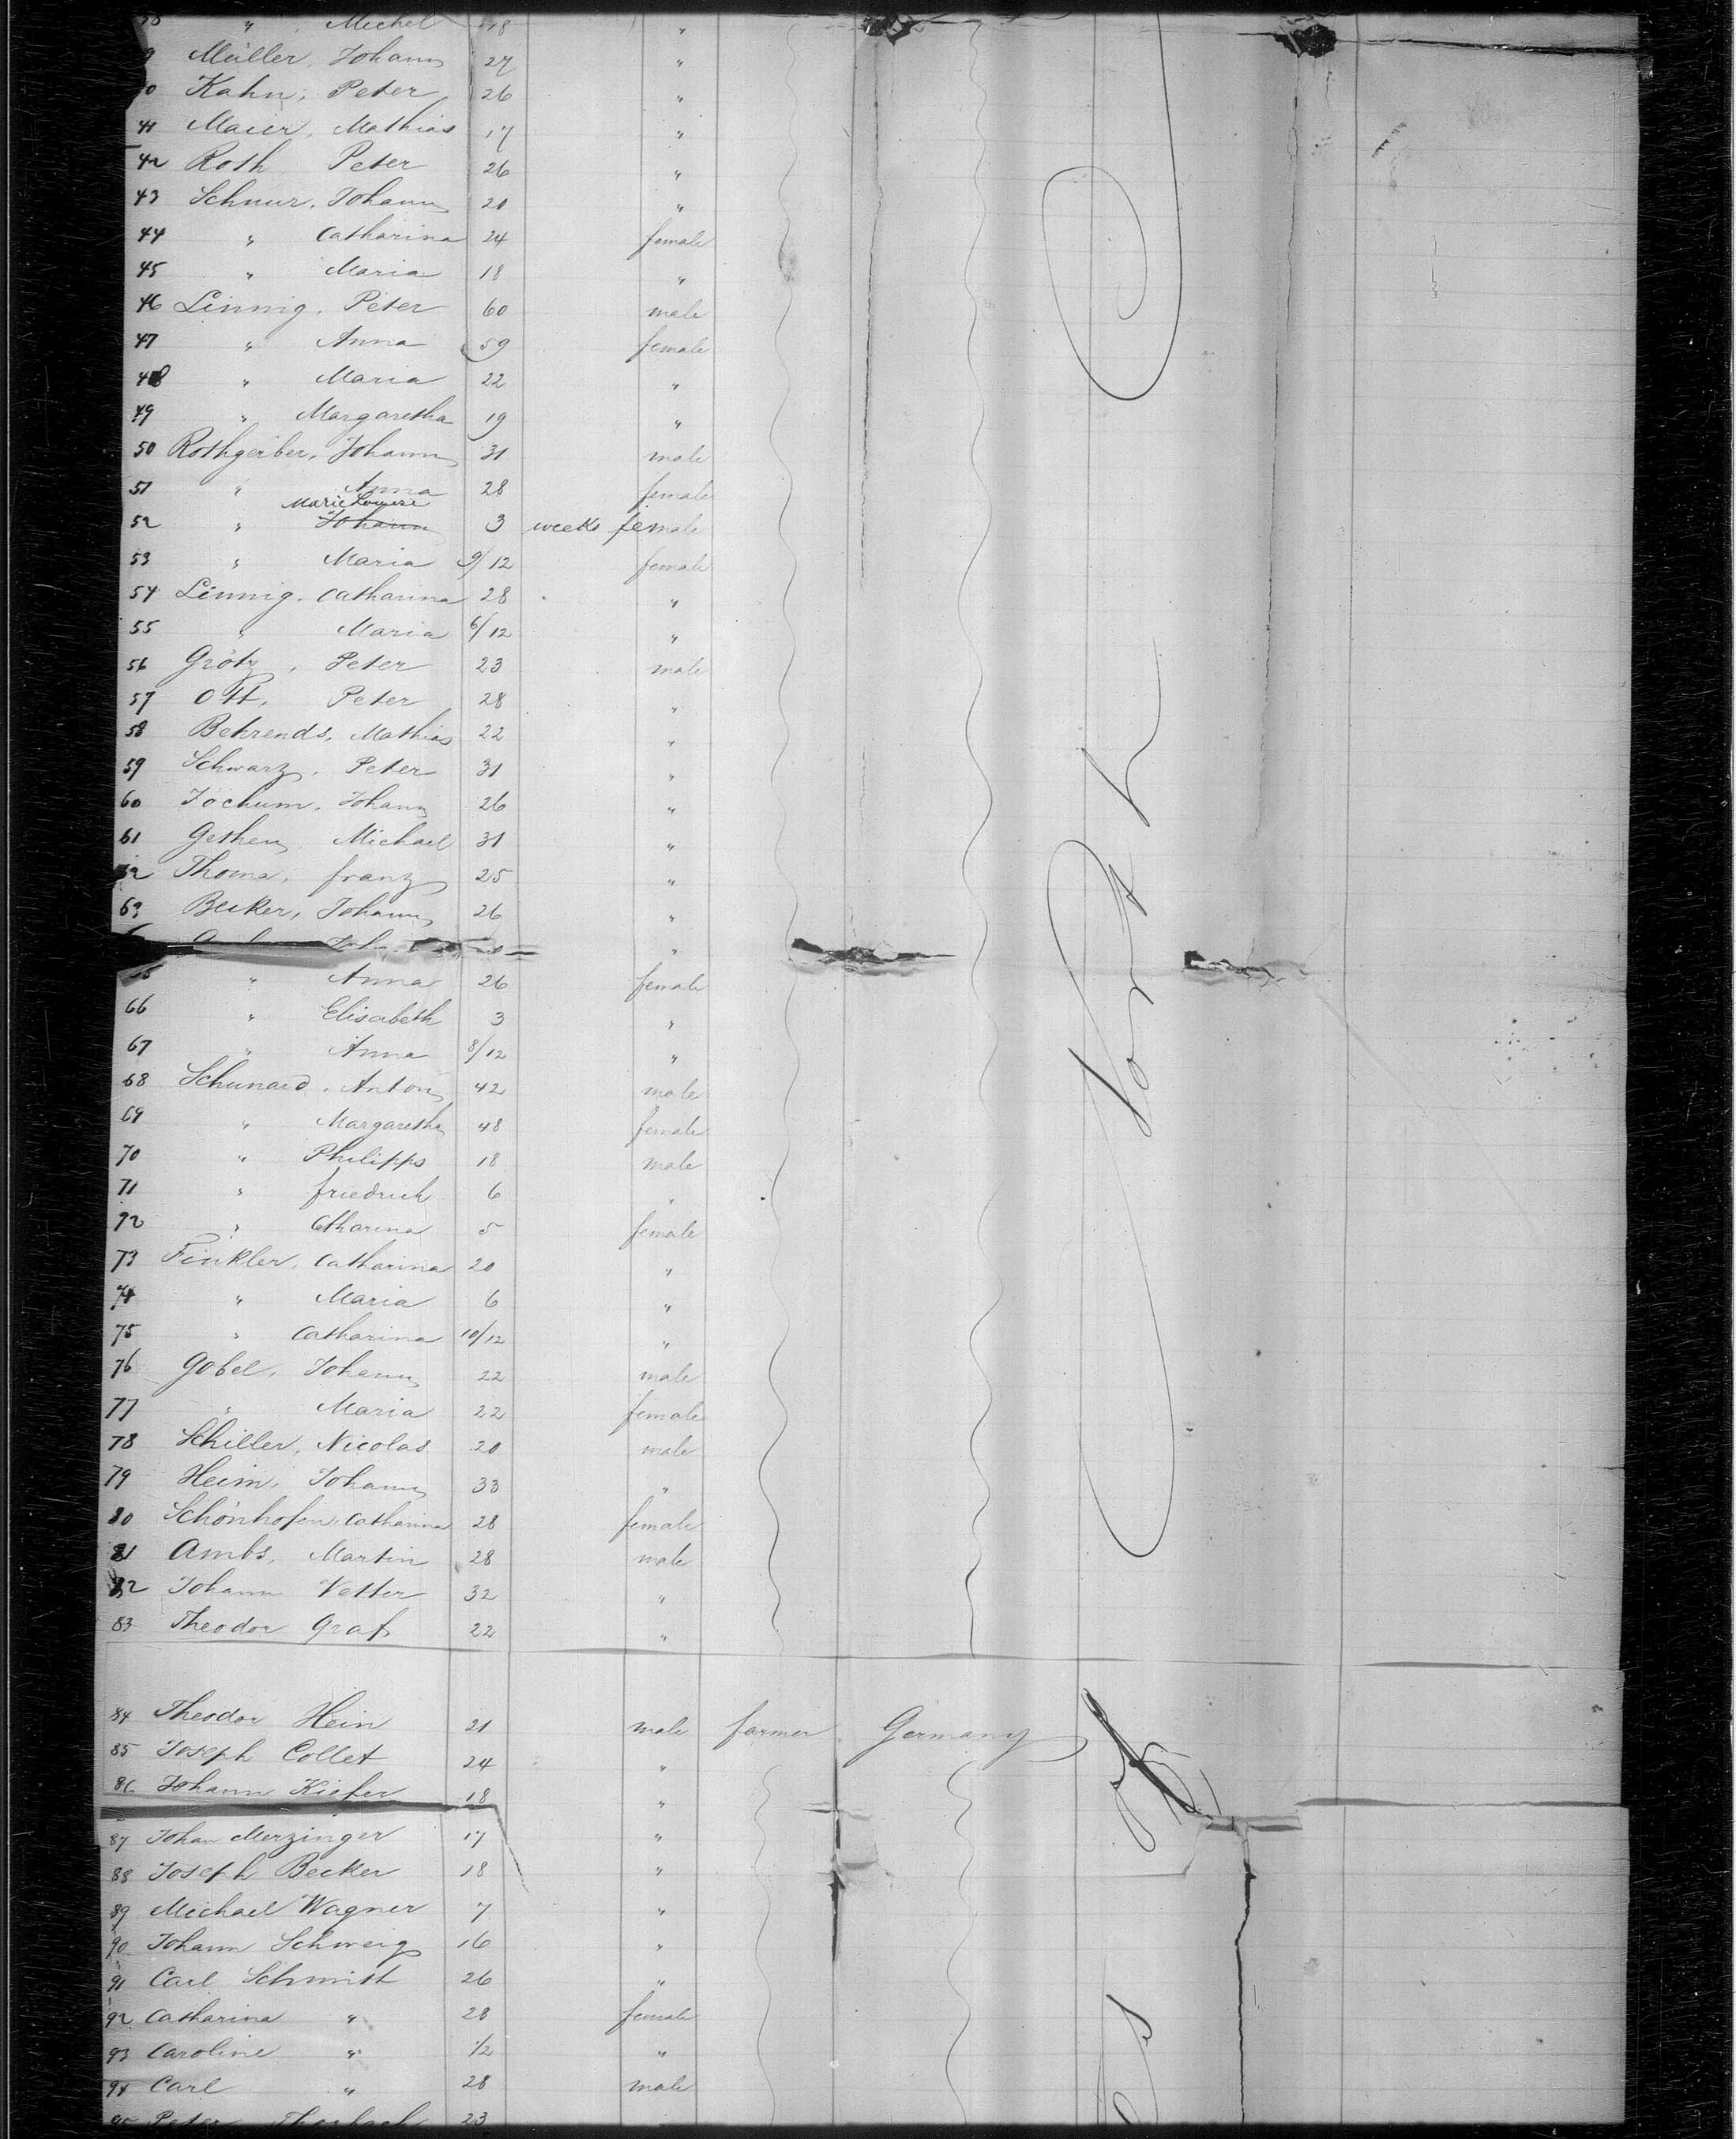 " Michel 48 "
Müller, Johann 27 "
Kahn, Peter 26 "
41 Maier, Mathias 17 "
42 Roth Peter 26 "
43 Schnur, Johann 20 "
44 " Catharina 24 female
45 " Maria 18 "
46 Linnig, Peter 60 male
47 " Anna 59 female
48 " Maria 22 "
49 " Margaretha 19 "
50 Rothgerber, Johann 31 male
51 " Anna 28 female
Marie Louise
52 " Johann 3 weeks female
53 " Maria 9/12 female
54 Linnig, Catharina 28 "
55 " Maria 6/12 "
56 Grötz, Peter 23 male
57 Ott, Peter 28 "
58 Behrends, Mathias 22 "
59 Schwarz, Peter 31 "
60 Jochum, Johann 26 "
61 Gethen, Michael 31 "
Thome, Franz 25 "
63 Becker, Johann 26 "
"
" Anna 26 female
66 " Elisabeth 3 "
67 " Anna 8/12 "
68 Schunard, Anton 42 male
69 " Margaretha 48 female
70 " Philipps 18 male
71 " Friedrich 6 "
72 " Catharina 5 female
73 Finkler, Catharina 20 "
74 " Maria 6 "
75 " Catharina 10/12 "
76 Gobel, Johann 22 male
77 " Maria 22 female
78 Schiller, Nicolas 20 male
79 Heim, Johann 33 "
80 Schönhofen, Catharina 28 female
81 Ambs, Martin 28 male
82 Johann Vetter 32 "
83 Theodor Graf 22 "
84 Theodor Hein 21 male farmer Germany
85 Joseph Collet 24 "
86 Johann Kiefer 18 "
87 Johan Merzinger 17 "
88 Joseph Becker 18 "
89 Michael Wagner 7 "
90 Johann Schweig 16 "
91 Carl Schmitt 26 "
92 Catharina " 28 female
93 Caroline " 1/2 "
94 Carl " 28 male
95 Peter 23
North
of